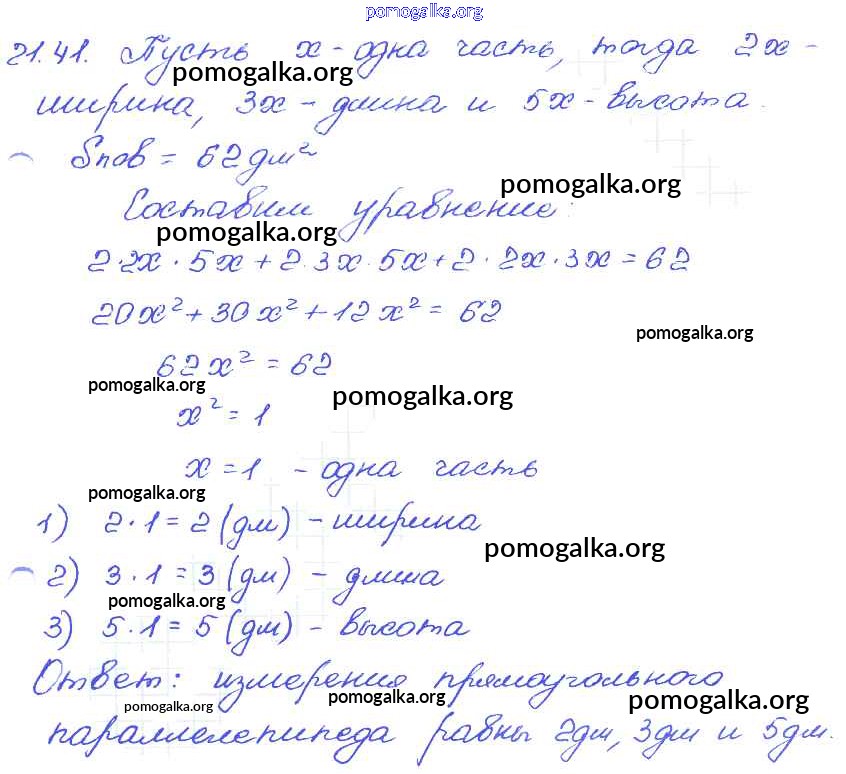 pomogalka.org
21.41. Пусть x - одна часть, тогда 2x -
pomogalka.org
ширина, 3x - длина и 5x - высота.
Sпов = 62 дм²
pomogalka.org
Составим уравнение:
pomogalka.org
2·2x·5x + 2·3x·5x + 2·2x·3x = 62
20x² + 30x² + 12x² = 62
pomogalka.org
62x² = 62
pomogalka.org
pomogalka.org
x² = 1
x = 1 - одна часть
pomogalka.org
1) 2·1 = 2 (дм) - ширина
pomogalka.org
2) 3·1 = 3 (дм) - длина
pomogalka.org
3) 5·1 = 5 (дм) - высота
Ответ: измерения прямоугольного
pomogalka.org
pomogalka.org
pomogalka.org
параллелепипеда равны 2дм, 3дм и 5дм.